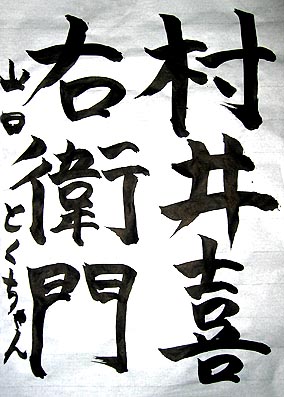 村井喜
右衛門
山口とくちゃん